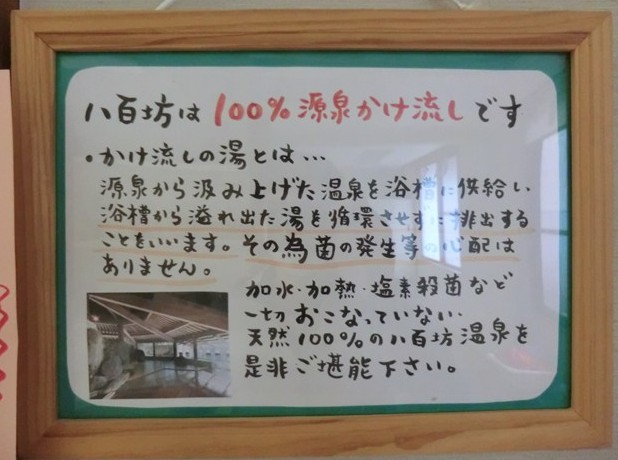 八百坊は100%源泉かけ流しです
・かけ流しの湯とは…
源泉から汲み上げた温泉を浴槽に供給い
浴槽から溢れ出た湯を循環させずに排出する
ことをいいます。その為菌の発生等の心配は
ありません。
加水・加熱・塩素殺菌など
一切おこなっていない
天然100%の八百坊温泉を
是非ご堪能下さい。